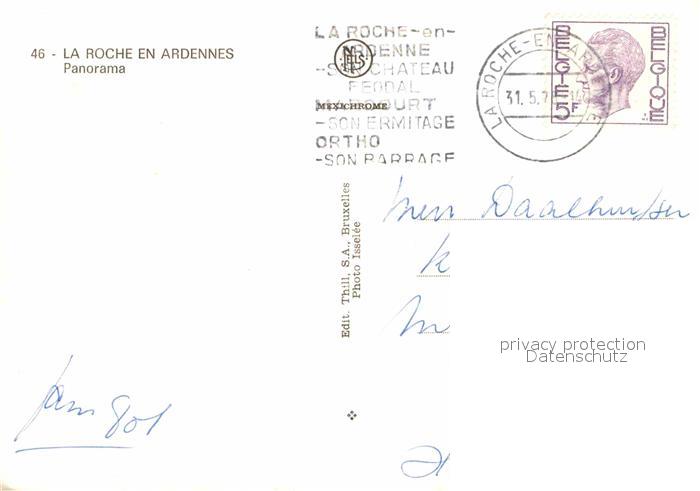 46 - LA ROCHE EN ARDENNES
Panorama
LA ROCHE-en-
ARDENNE
-SON CHATEAU
FEODAL
MARCOURT
-SON ERMITAGE
ORTHO
-SON BARRAGE
NELS
MEXICHROME
LA ROCHE-EN-ARDENNE
31.5.7
BELGIE
5F
BELGIQUE
Edit. Thill, S.A., Bruxelles
Photo Isselée
K
privacy protection
Datenschutz